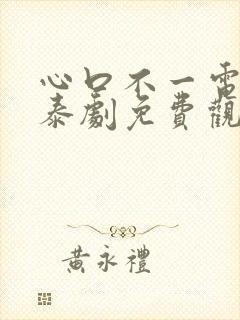 心口不一電
泰劇免費觀
黃永禮